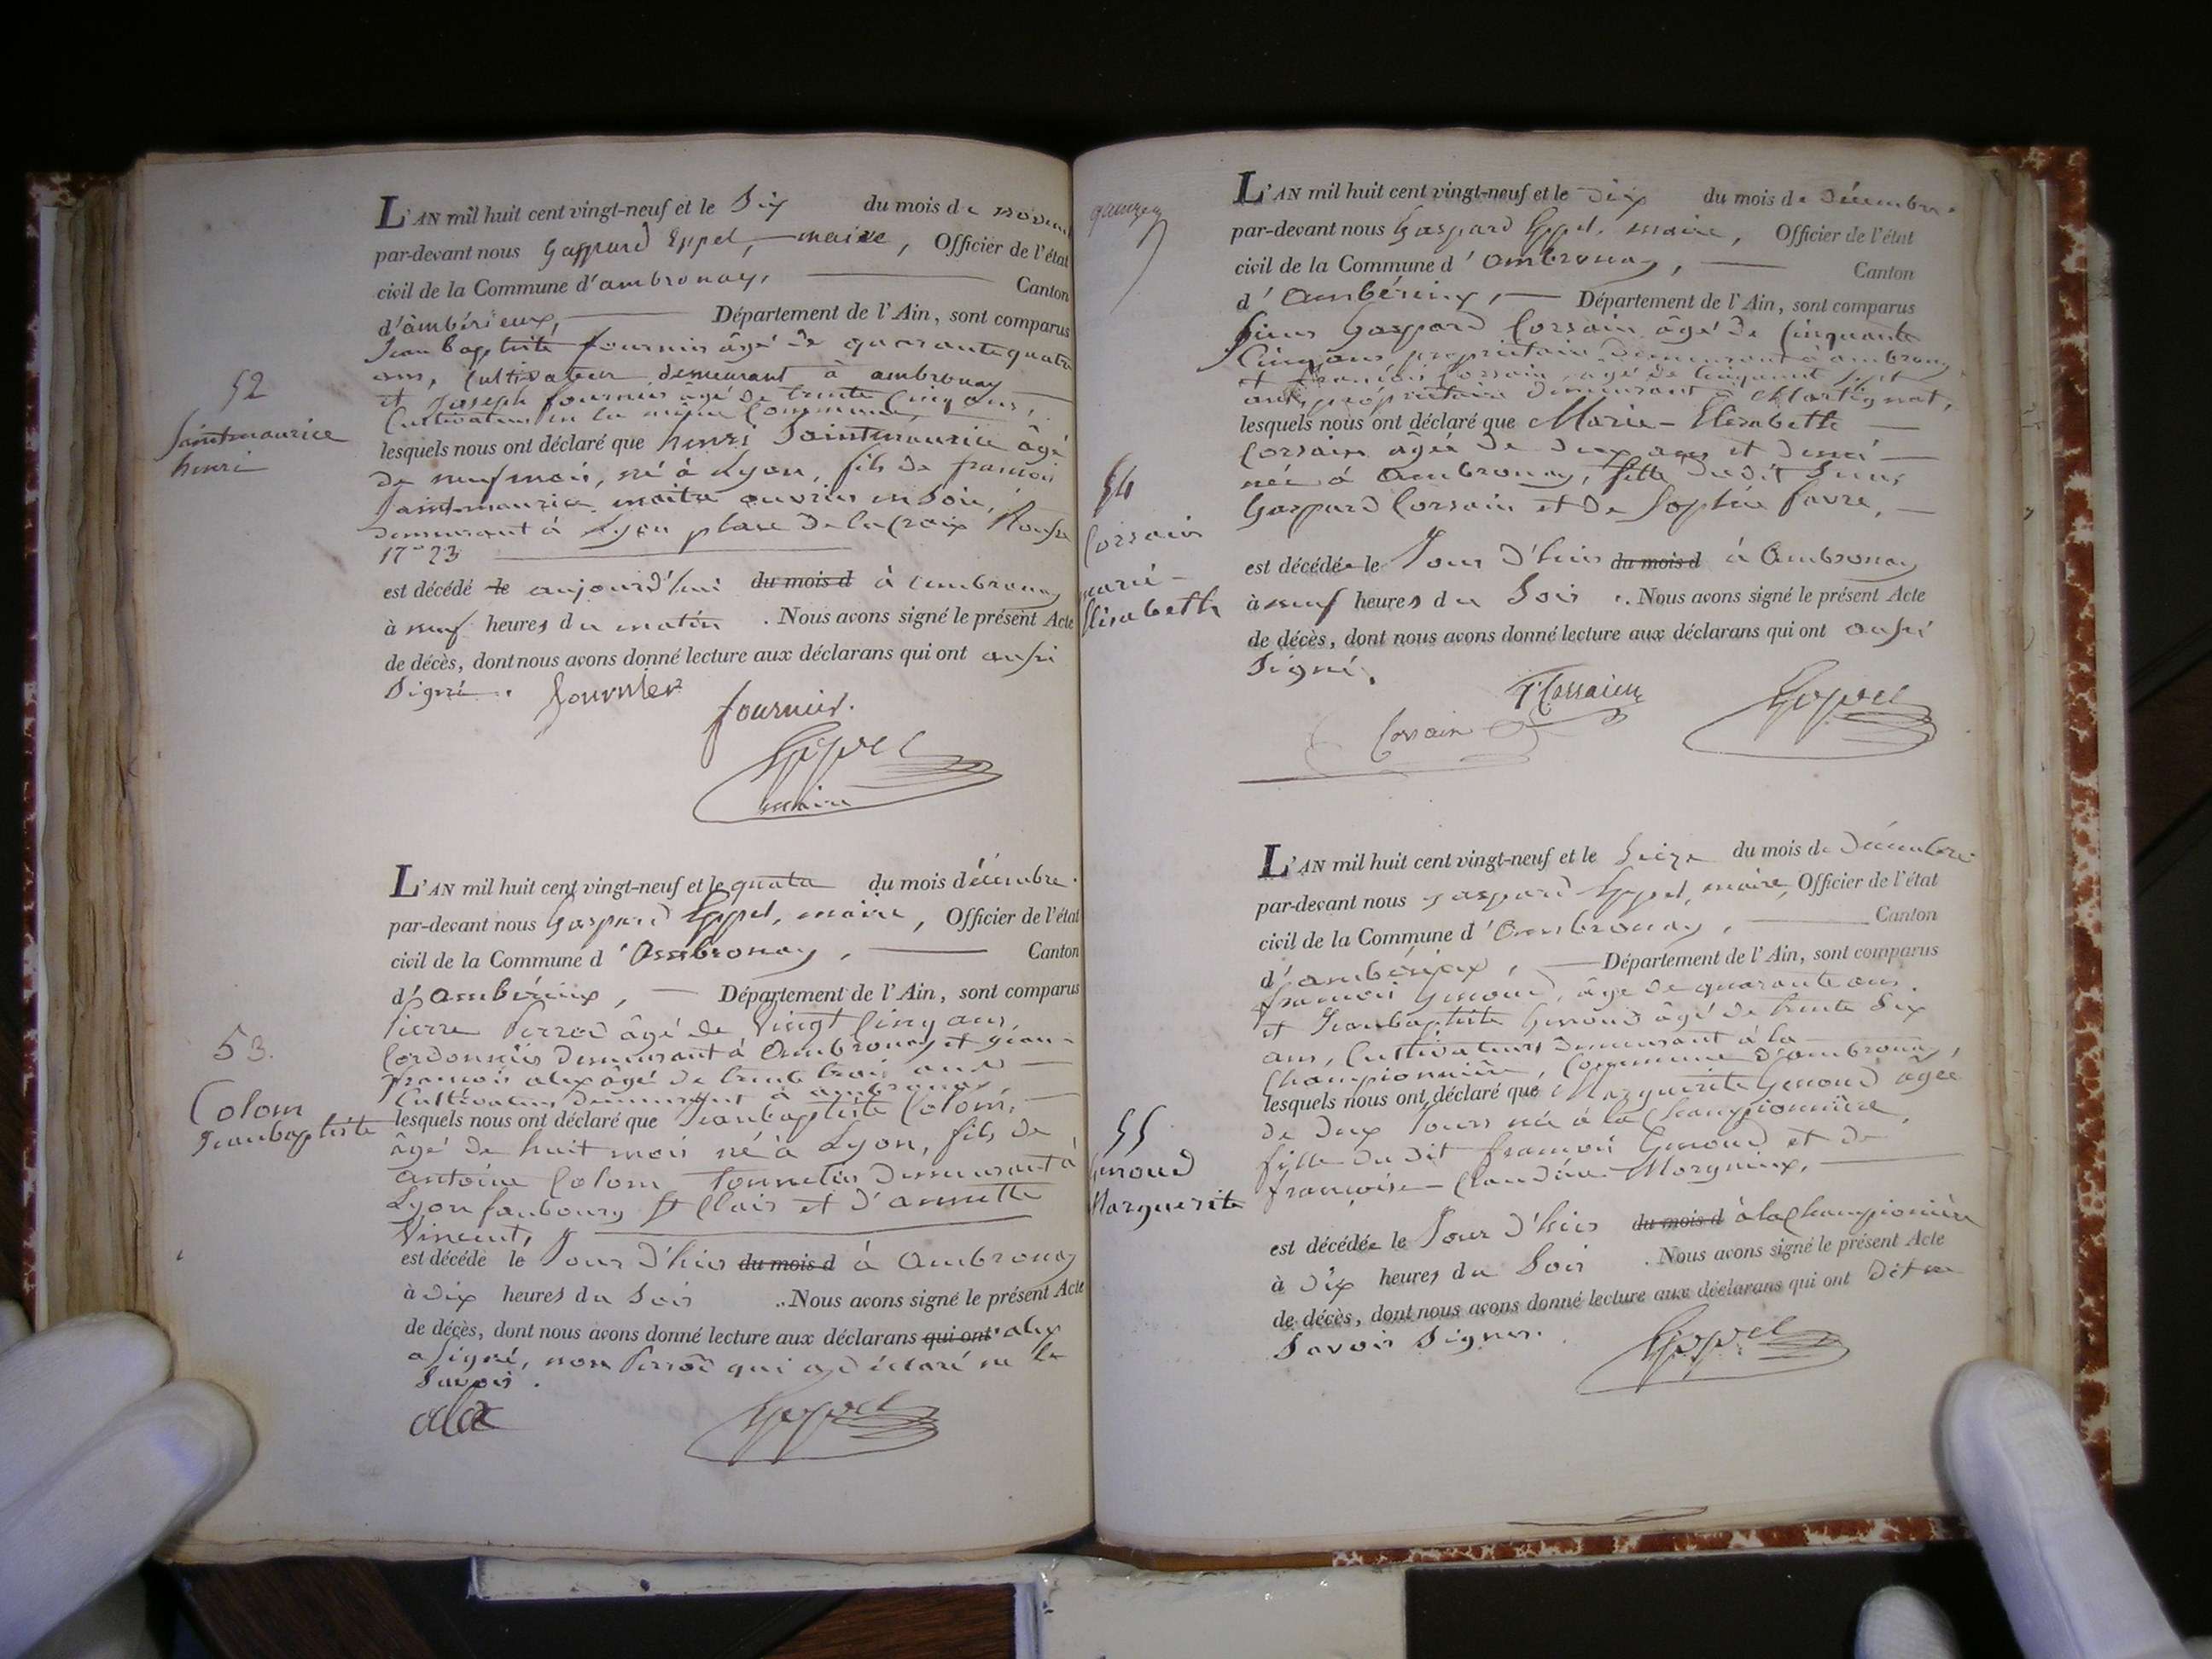 52
Saintmaurice
henri
L'AN mil huit cent vingt-neuf et le Six du mois de novem
par-devant nous Gaspard Eppel, maire, Officier de l'état
civil de la Commune d'ambronay, Canton
d'ambérieux, Département de l'Ain, sont comparus
Jean baptiste fournier âgé de quarante quatre
ans, Cultivateur demeurant à ambronay
et Joseph fournier âgé de trente Cinq ans,
Cultivateur en la même Commune,
lesquels nous ont déclaré que henri Saintmaurice âgé
de neuf mois, né à Lyon, fils de françois
Saintmaurice maitre ouvrier en Soie,
demeurant à Lyon place de la Croix Rousse
23
est décédé le aujourd'hui du mois d à ambronay
à neuf heures du matin . Nous avons signé le présent Acte
de décès, dont nous avons donné lecture aux déclarans qui ont aussi
Signé. fournier
fournier.
Eppel
maire
53.
Colom
Jeanbaptiste
L'AN mil huit cent vingt-neuf et le quatre du mois décembre
par-devant nous Gaspard Eppel, maire, Officier de l'état
civil de la Commune d'Ambronay, Canton
d'ambérieux, Département de l'Ain, sont comparus
Pierre Perrod âgé de Vingt Cinq ans,
Cordonnier demeurant à Ambronay et jean-
françois alex âgé de trente trois ans
Cultivateur demeurant à ambronay,
lesquels nous ont déclaré que Jeanbaptiste Colom,
âgé de huit mois né à Lyon, fils de
antoine Colom Tonnelier demeurant à
Lyon faubourg St Clair et d'annette
Vincent,
est décédé le Jour d'hier du mois d à Ambronay
à dix heures du Soir . Nous avons signé le présent Acte
de décès, dont nous avons donné lecture aux déclarans qui ont alex
a Signé, non Perrod qui a déclaré ne le
Savoir.
alex
Eppel
54
Corsain
marie-
Elisabeth
L'AN mil huit cent vingt-neuf et le dix du mois de décembre
par-devant nous Gaspard Eppel, maire, Officier de l'état
civil de la Commune d'Ambronay, Canton
d'Ambérieux, Département de l'Ain, sont comparus
Sieur Gaspard Corsain âgé de Cinquante
Cinq ans propriétaire demeurant à ambronay
et françois Corsain âgé de Cinquante Sept
ans, propriétaire demeurant à Martignat,
lesquels nous ont déclaré que Marie-Elisabeth
Corsain âgée de deux ans et demi
née à Ambronay, fille dudit Sieur
Gaspard Corsain et de Sophie favre,
est décédée le Jour d'hier du mois d à Ambronay
à neuf heures du Soir . Nous avons signé le présent Acte
de décès, dont nous avons donné lecture aux déclarans qui ont aussi
Signé.
Corsain
Corsain
Eppel
55
Genoud
Marguerite
L'AN mil huit cent vingt-neuf et le Seize du mois de Décembre
par-devant nous gaspard Eppel, maire, Officier de l'état
civil de la Commune d'Ambronay, Canton
d'ambérieux, Département de l'Ain, sont comparus
françois Genoud, âgé de quarante ans.
et Jeanbaptiste Genoud âgé de trente Six
ans, Cultivateurs demeurant à la
Championnière, Commune d'ambronay,
lesquels nous ont déclaré que Marguerite Genoud âgée
de deux Jours née à la Championnière,
fille du dit françois Genoud et de
françoise-Claudine Morgnieux,
est décédée le Jour d'hier du mois d à la Championière
à Dix heures du Soir . Nous avons signé le présent Acte
de décès, dont nous avons donné lecture aux déclarans qui ont dit ne
Savoir Signer.
Eppel